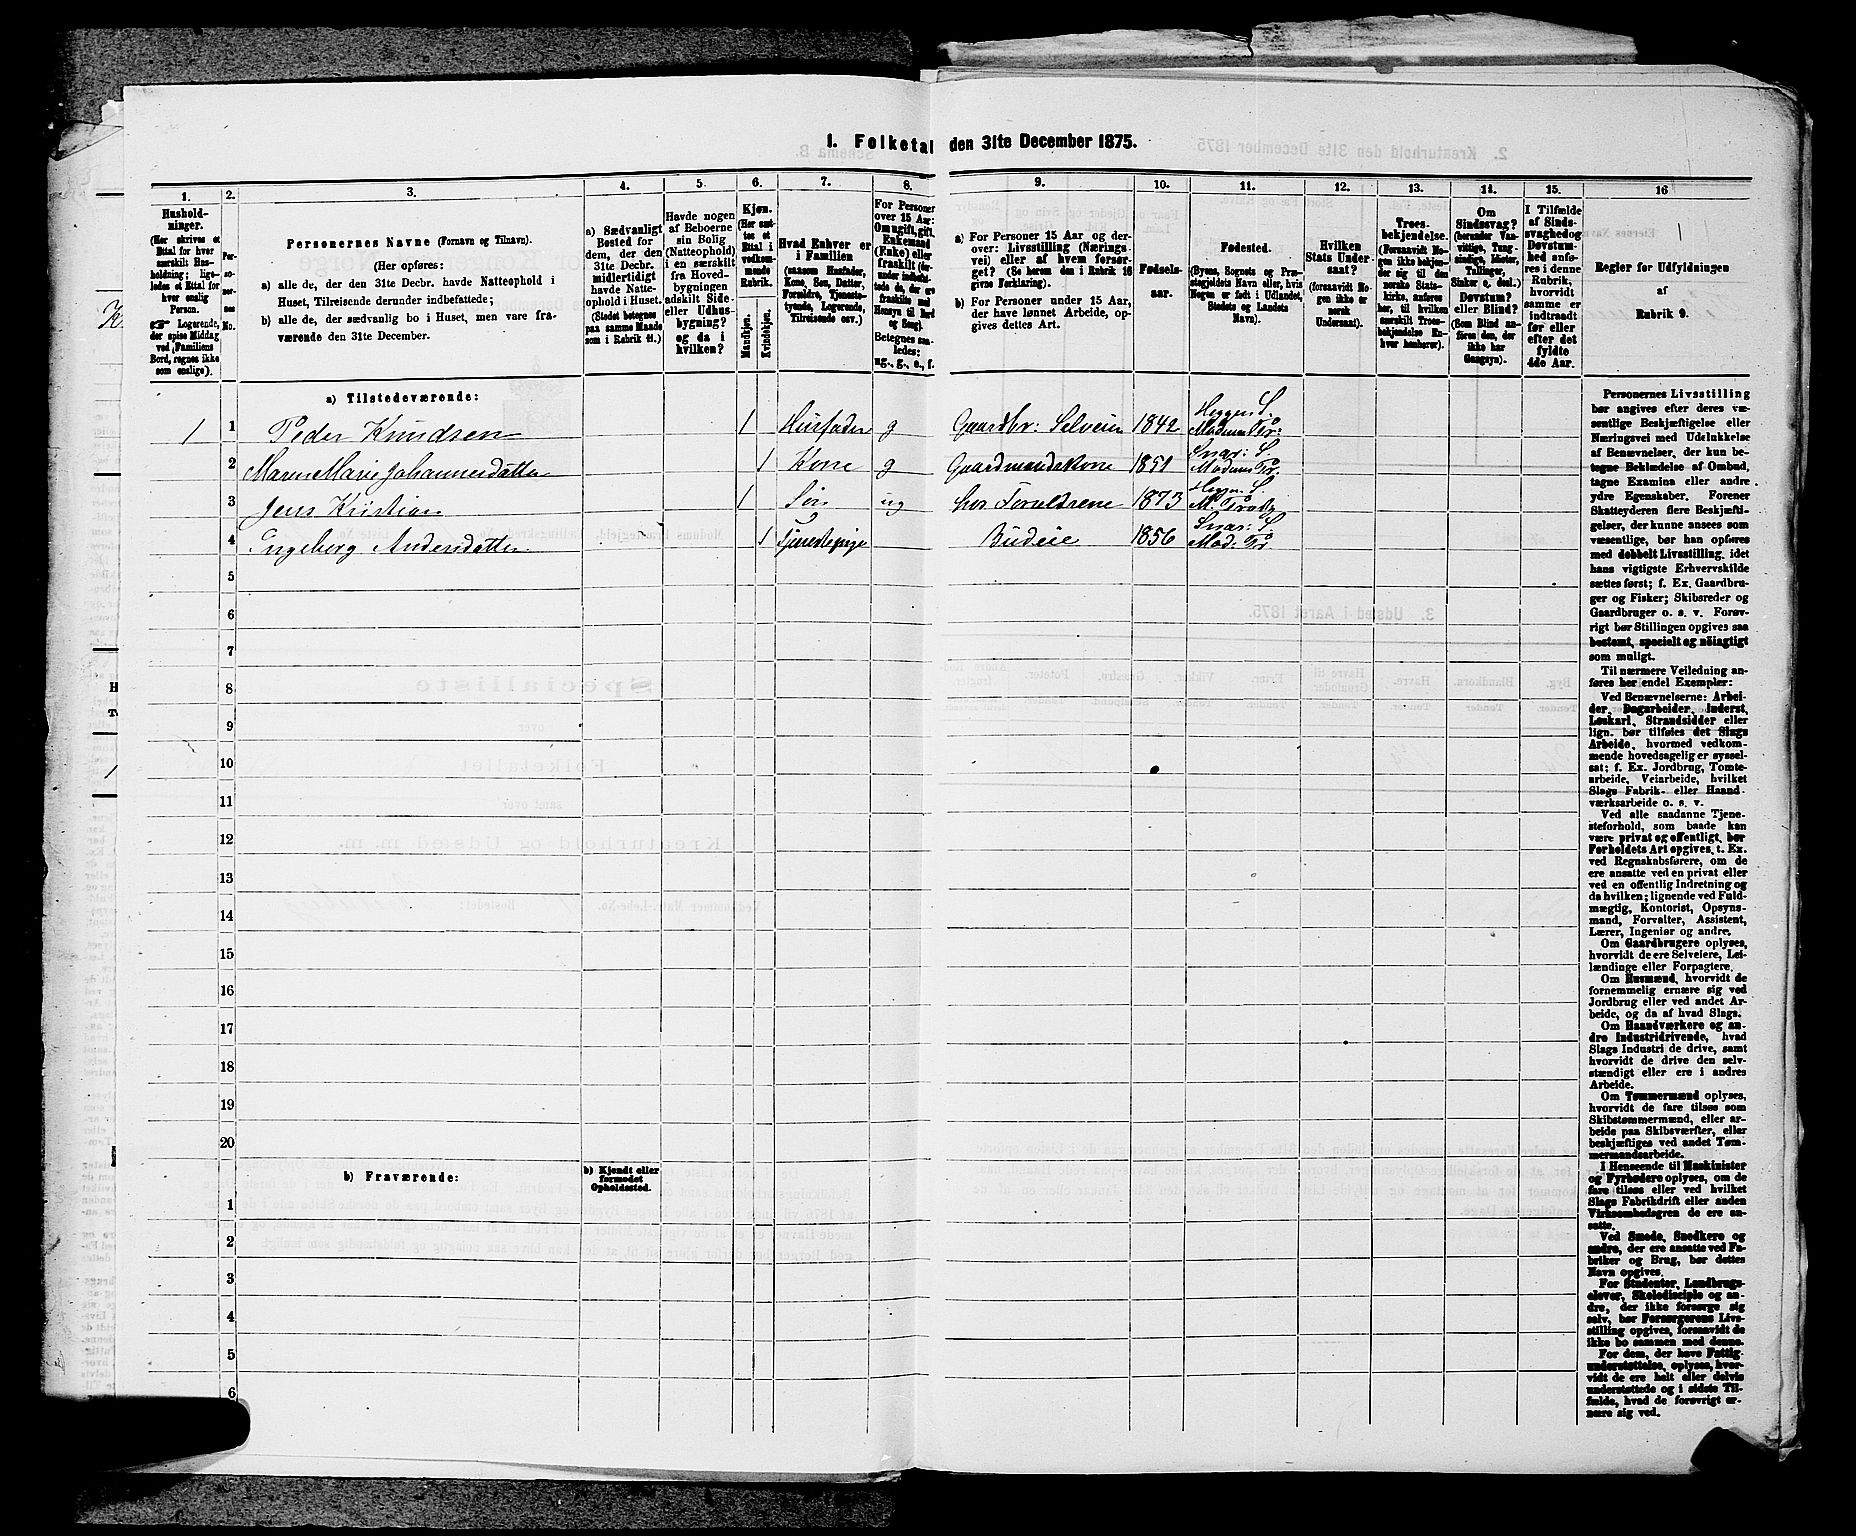 I. Folketal den 31te December 1875.
1. 2. 3. 4. 5. 6. 7. 8. 9. 10. 11. 12. 13. 14. 15. 16
Hushold-
ninger.
(Her skrives et
Ettal for hver
særskilt Hus-
holdning; lige-
ledes et Ettal for
hver enslig
Person.
☞ Logerende,
der spise Middag
ved Familiens
Bord, regnes ikke
som enslige).
Per-
so-
ner-
nes
No.
Personernes Navne (Fornavn og Tilnavn).
(Her opføres:
a) alle de, der den 31te Decbr. havde Natteophold i
Huset, Tilreisende derunder indbefattede;
b) alle de, der sædvanlig bo i Huset, men vare fra-
værende den 31te December.
a) Sædvanligt
Bosted for
dem, der den
31te Decbr.
midlertidigt
havde Natte-
ophold i Huset.
(Stedet betegnes
paa samme Maade
som i Rubrik 11.)
Havde nogen
af Beboerne
sin Bolig
(Natteophold)
i en særskilt
fra Hoved-
bygningen
adskilt Side-
eller Udhus-
bygning?
og da i
hvilken?
Kjøn.
(Her sæt-
tes et
Ettal i
vedkom-
mende
Rubrik.
Mandkjøn.
Kvindekjøn.
Hvad Enhver er
i Familien
(saasom Husfader,
Kone, Søn, Datter,
Forældre, Tjeneste-
tyende, Logerende,
Tilreisende osv.)
For Personer
over 15 Aar:
Om ugift, gift,
Enkemand
(Enke) eller
fraskilt
Betegnes saa-
ledes:
ug., g., e., f.
a) For Personer 15 Aar og der-
over: Livsstilling (Nærings-
vei) eller af hvem forsør-
get? (Se herom den i Rubrik 16
givne Forklaring).
b) For Personer under 15 Aar,
der have lønnet Arbeide, op-
gives dettes Art.
Fødsels-
aar.
Fødested.
(Byens, Sognets og Præ-
stegjeldets Navn eller, hvis
Nogen er født i Udlandet,
Stedets og Landets
Navn).
Hvilken
Stats Under-
saat?
(forsaavidt No-
gen ikke er
norsk
Undersaat).
Troes-
bekjendelse.
(Forsaavidt No-
gen ikke bekjen-
der sig til den
norske Stats-
kirke, anføres
her, til hvilken
særskilt Troes-
bekjendelse En-
hver henhører).
Om
Sindssvag?
(herunder Van-
vittige, Tung-
sindige, Idioter,
Tullinger,
Sinker o. desl.)
Døvstum?
eller Blind?
(Som Blind an-
føres den, der
ikke har
Gangsyn).
I Tilfælde
af Sinds-
svaghed og
Døvstum-
hed anfø-
res i denne
Rubrik,
hvorvidt
samme er
indtraadt
før eller
efter det
fyldte
4de Aar.
Regler for Udfyldningen
af
Rubrik 9.
a) Tilstedeværende:
1 1 Peder Knudsen 1 Husfader g Gaardbr: Selveier 1842 Heggens S. Modums Pr:
2 Maren Marie Johannesdatter 1 Kone g Gaardmandskone 1851 Snar: S. Modums Pr.
3 Jens Kristian 1 Søn ug hos Forældrene 1873
4 Engeborg Andersdatter 1 Tjenestepige Budeie 1856 Snar: S. Mod: Pr
5
6
7
8
9
10
11
12
13
14
15
16
17
18
19
20
b) Fraværende:
b) Kjendt eller
formodet
Opholdssted.
1
2
3
4
5
6
Personernes Livsstilling
bør angives efter deres væ-
sentlige Beskjæftigelse eller
Næringsvei med Udelukkelse
af Benævnelser, der kun be-
tegne Beklædelse af Ombud,
tagne Examina eller andre
ydre Egenskaber. Forener
Skatteyderen flere Beskjæfti-
gelser, der kunne ansees som
væsentlige, bør han opføres
med dobbelt Livsstilling, idet
hans vigtigste Erhvervskilde
sættes først; f. Ex. Gaardbru-
ger og Fisker; Skibsreder og
Gaardbruger o. s. v. Forøv-
rigt bør Stillingen opgives saa
bestemt, specielt og nøiagtigt
som muligt.
Til nærmere Veiledning an-
føres her endel Exempler:
Ved Benævnelserne: Arbei-
der, Dagarbeider, Inderst,
Løskarl, Strandsidder eller
lign. bør tilføies det Slags
Arbeide, hvormed vedkom-
mende hovedsagelig er syssel-
sat; f. Ex. Jordbrug, Tomte-
arbeide, Veiarbeide, hvilket
Slags Fabrik- eller Haand-
værksarbeide o. s. v.
Ved alle saadanne Tjene-
steforhold, som baade kan
være privat og offentligt, bør
Forholdets Art opgives, t. Ex.
ved Regnskabsførere, om de
ere ansatte ved en privat eller
ved en offentlig Indretning og
da hvilken; lignende ved Fuld-
mægtig, Kontorist, Opsyns-
mand, Forvalter, Assistent,
Lærer, Ingeniør og andre.
Om Gaardbrugere oplyses,
hvorvidt de ere Selveiere, Lei-
lændinge eller Forpagtere.
Om Husmænd, hvorvidt de
fornemmelig ernære sig ved
Jordbrug eller ved andet Ar-
beide, og da af hvad Slags.
Om Haandværkere og an-
dre Industridrivende, hvad
Slags Industri de drive, samt
hvorvidt de drive den selv-
stændigt eller ere i andres
Arbeide.
Om Tømmermænd oplyses,
hvorvidt de fare tilsøs som
Skibstømmermænd, eller ar-
beide paa Skibsværfter, eller
beskjæftiges ved andet Tøm-
mermandsarbeide.
I Henseende til Maskinister
og Fyrbødere oplyses, om de
fare tilsøs eller ved hvilket
Slags Fabrikdrift eller anden
Virksomhedsgren de ere an-
satte.
Ved Smede, Snedkere og
andre, der ere ansatte ved Fa-
briker og Brug, bør dettes
Navn opgives.
For Studenter, Landbrugs-
elever, Skoledisciple og an-
dre, der ikke forsørge sig
selv, bør Forsørgerens Livs-
stilling opgives, forsaavidt de
ikke bo sammen med denne.
For dem, der have Fattig-
understøttelse, oplyses, hvor-
vidt de ere helt eller delvis
understøttede og i sidste Til-
fælde, hvad de forøvrigt er-
nære sig ved.